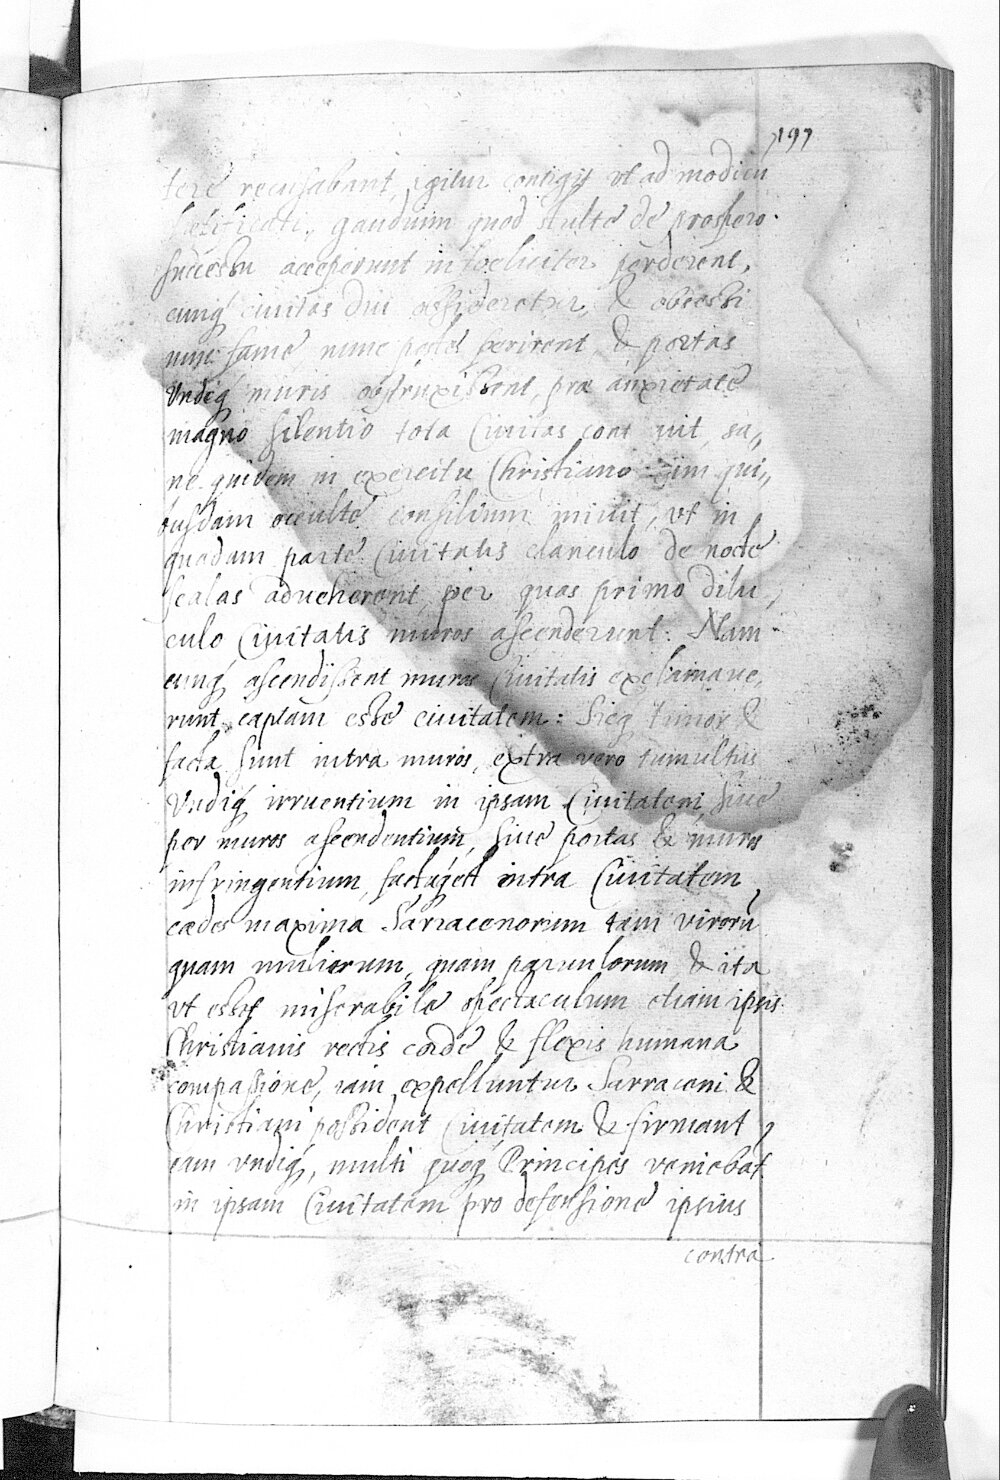 197
tere recusabant, igitur contigit vt ad modicū
lætificati, gaudium quod stulte de prospero
successu acceperunt infoeliciter perderent,
cumq́ ciuitas diu assideretur, & obsessi
nunc fame nunc peste perirent, & portas
vndiq́ muris obstruxissent, præ anxietate
magno silentio tota Ciuitas cont uit, sa„
ne quidem in exercitu Christiano cum qui„
busdam occulte consilium iniuit, vt in
quadam parte Ciuitatis clanculo de nocte
scalas adueherent, per quas primo dilu,
culo Ciuitatis muros ascenderunt. Nam
cumq́ ascendissent muros Ciuitatis exclamaue,
runt captam esse ciuitatem: Sicq timor &
facta sunt intra muros, extra vero tumultus
vndiq́ irruentium in ipsam Ciuitatem, siue
per muros ascendentium, siue portas & muros
infringentium, intra Ciuitatem
cædes maxima Sarracenorum tam virorū
quam mulierum, quam paruulorum & ita
vt esset miserabile spectaculum etiam ipsis
Christianis rectis corde & flexis humana
compassione, iam expelluntur Sarraceni &
Christiani possident Ciuitatem & firmant
eam vndiq́, multi quoq́ Principes veniebāt
in ipsam Ciuitatem pro defensione ipsius
contra